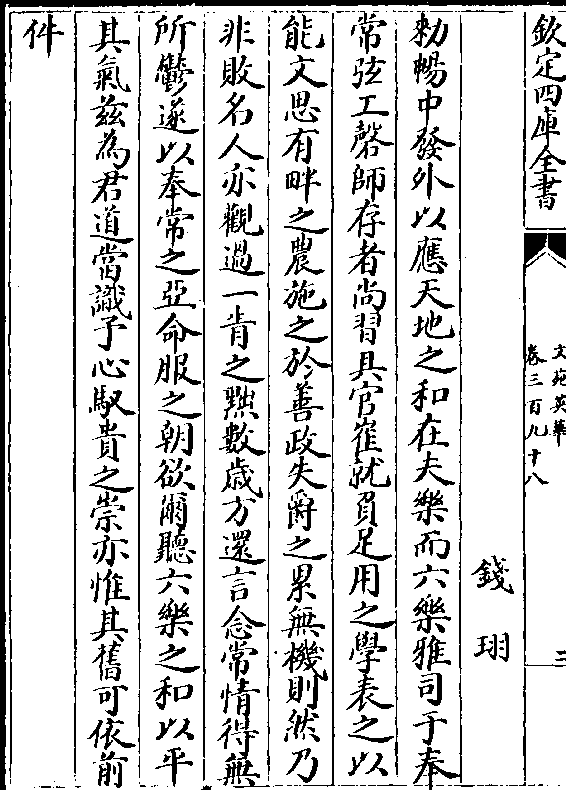 欽定四庫全書
文苑英華
卷三百九十八
三
錢珝
勅暢中發外以應天地之和在夫樂而六樂雅司于奉
常弦工磬師存者尚習具官崔就負足用之學表之以
能文思有畔之農施之於善政失爵之累無機則然乃
非敗名人亦觀過一眚之黜數歳方還言念常情得無
所鬱遂以奉常之亞命服之朝欲爾聽六樂之和以平
其氣兹為君道當識予心馭貴之崇亦惟其舊可依前
件